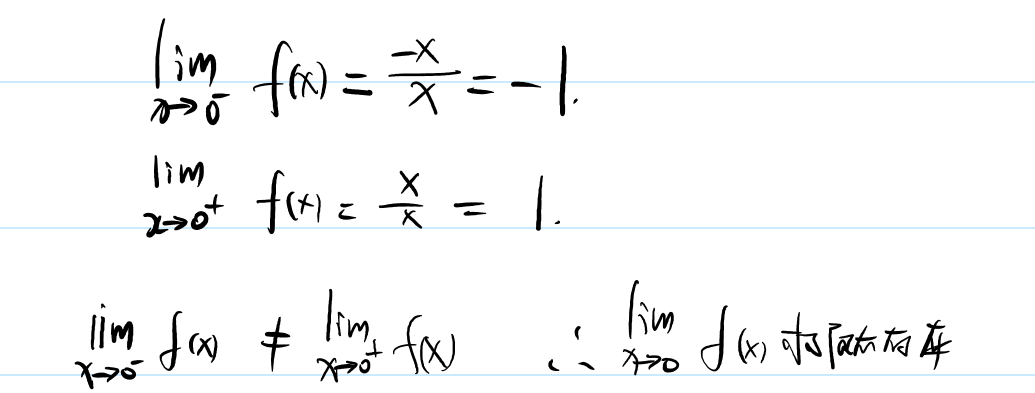 lim x→0⁻ f(x) = -x/x = -1.
lim x→0⁺ f(x) = x/x = 1.
lim x→0⁻ f(x) ≠ lim x→0⁺ f(x) ∴ lim x→0 f(x)